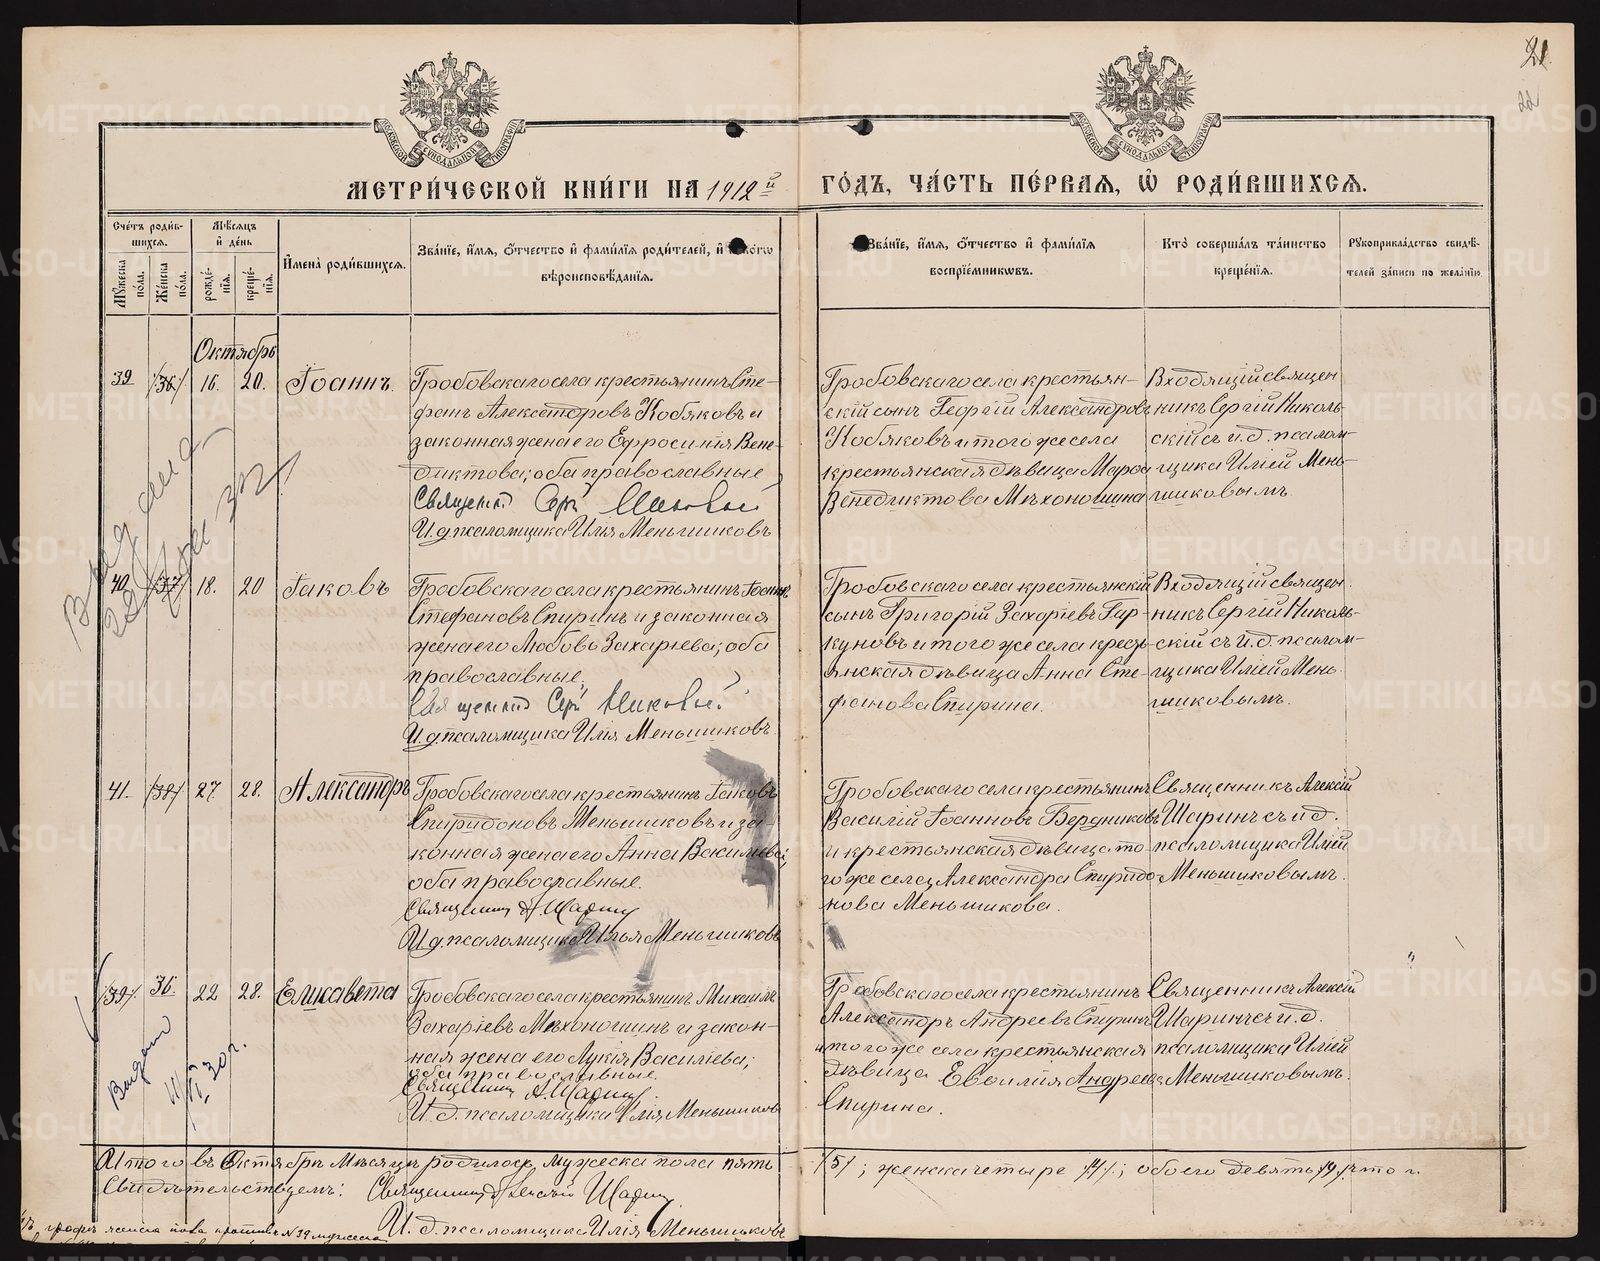 21
22
МОСКОВСКОЙ СѴНОДАЛЬНОЙ ТИПОГРАФІИ
МОСКОВСКОЙ СѴНОДАЛЬНОЙ ТИПОГРАФІИ
МЕТРИ́ЧЕСКОЙ КНИ́ГИ НА 1912й ГО́ДЪ, ЧА́СТЬ ПЕ́РВАѦ, Ѡ҆ РОДИ́ВШИХСѦ.
Сче́тъ роди́в-
шихсѧ.
Мꙋ́жеска по́ла.
Же́нска по́ла.
Мѣ́сѧцъ
и҆ де́нь
рожде́-
нїѧ.
креще́-
нїѧ.
И҆мена̀ роди́вшихсѧ.
Зва́нїе, и҆́мѧ, ѻ҆́тчество и҆ фамѝлїѧ роди́телей, и҆
вѣроисповѣ́данїѧ.
Зва́нїе, и҆́мѧ, ѻ҆́тчество и҆ фамѝлїѧ
воспрїе́мникѡвъ.
Кто̀ соверша́лъ та́инство
креще́нїѧ.
Рꙋкоприкла́дство свидѣ́-
телей за́писи по жела́нїю.
Октябрь
39
/36/
16.
20.
Іоаннъ.
Гробовскаго села крестьянинъ Сте-
фанъ Александровъ Кобяковъ и
законная жена его Ефросинія Вене-
диктова; оба православные
Священникъ
И. д. псаломщика Илія Меньшиковъ
Гробовскаго села крестьян-
скій сынъ Георгій Александровъ
Кобяковъ и того же села
крестьянская дѣвица Марѳа
Венедиктова Мѣхоношина
Входящій священ
никъ Сергій Николь-
скій съ и. д. псалом-
щика Иліей Мень-
шиковымъ.
40
/37/
18.
20
Іаковъ
Гробовскаго села крестьянинъ Іоаннъ
Стефановъ Спиринъ и законная
жена его Любовь Захарьева; оба
православные.
Священникъ
И. д. псаломщика Илія Меньшиковъ
Гробовскаго села крестьянскій
сынъ Григорій Захаріевъ Гар-
куновъ и того же села кресть-
янская дѣвица Анна Сте-
фанова Спирина.
Входящій священ.
никъ Сергій Николь-
скій съ и. д. псалом-
щика Иліей Мень.
шиковымъ.
41.
/38/
27
28.
Александръ
Гробовскаго села крестьянинъ Іаковъ
Спиридоновъ Меньшиковъ и за-
конная жена его Анна Васильева;
оба православные.
Священникъ А. Шаринъ
И. д. псаломщика Илья Меньшиковъ
Гробовскаго села крестьянинъ
Василій Іоанновъ Бердниковъ
и крестьянская дѣвица то
го же села Александра Спиридо-
нова Меньшикова.
Священникъ Алексій
Шаринъ съ и д.
псаломщика Иліей
Меньшиковымъ.
/39/.
36.
22
28.
Елисавета
Гробовскаго села крестьянинъ Михаилъ
Захаріевъ Мѣхоношинъ и закон-
ная жена его Лукія Василіева;
оба православные.
Священникъ А. Шаринъ.
И. д. псаломщика Илія Меньшиковъ
Гробовскаго села крестьянинъ
Александръ Андреевъ Спиринъ
и того же села крестьянская
дѣвица Евдокія Андреева
Спирина.
Священникъ Алексій
Шаринъ съ и. д.
псаломщика Иліей
Меньшиковымъ.
Итого въ Октябрѣ мѣсяцѣ родилось мужеска пола пять /5/; женска четыре /4/.; обоего девять /9/.
Свидѣтельствуемъ: Священникъ Алексій Шаринъ
И. д. псаломщика Илія Меньшиковъ